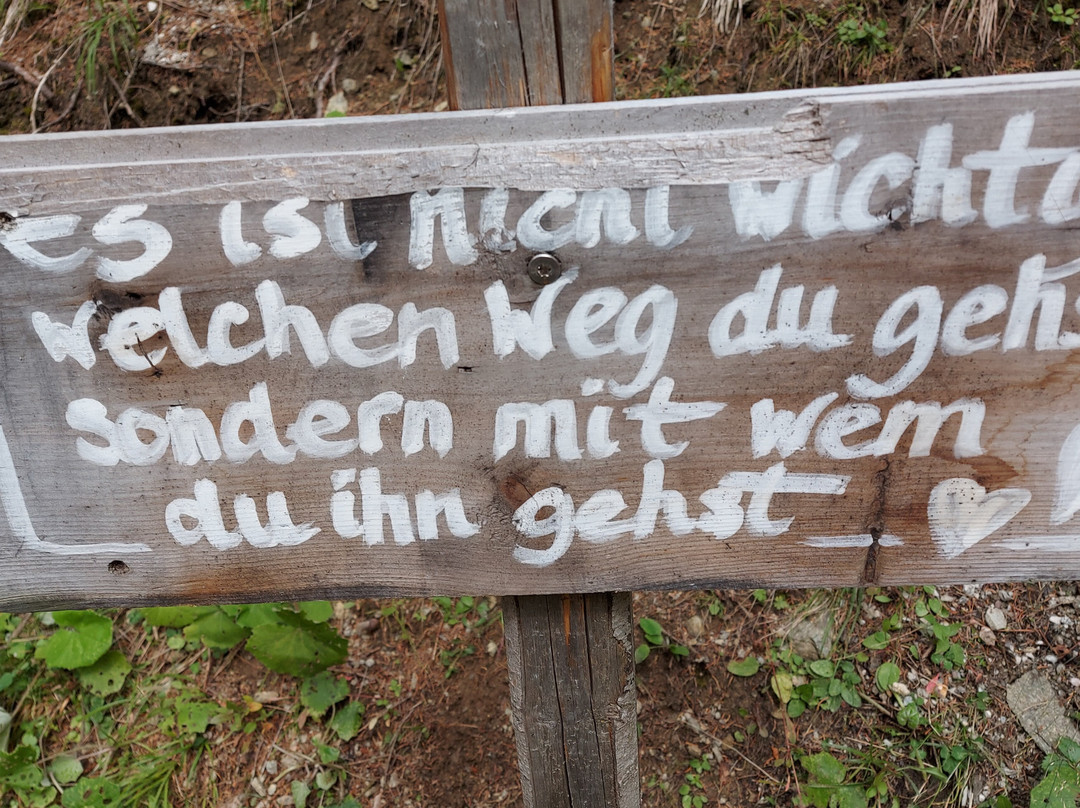 es ist nicht wichtig
welchen Weg du gehst
sondern mit wem
du ihn gehst